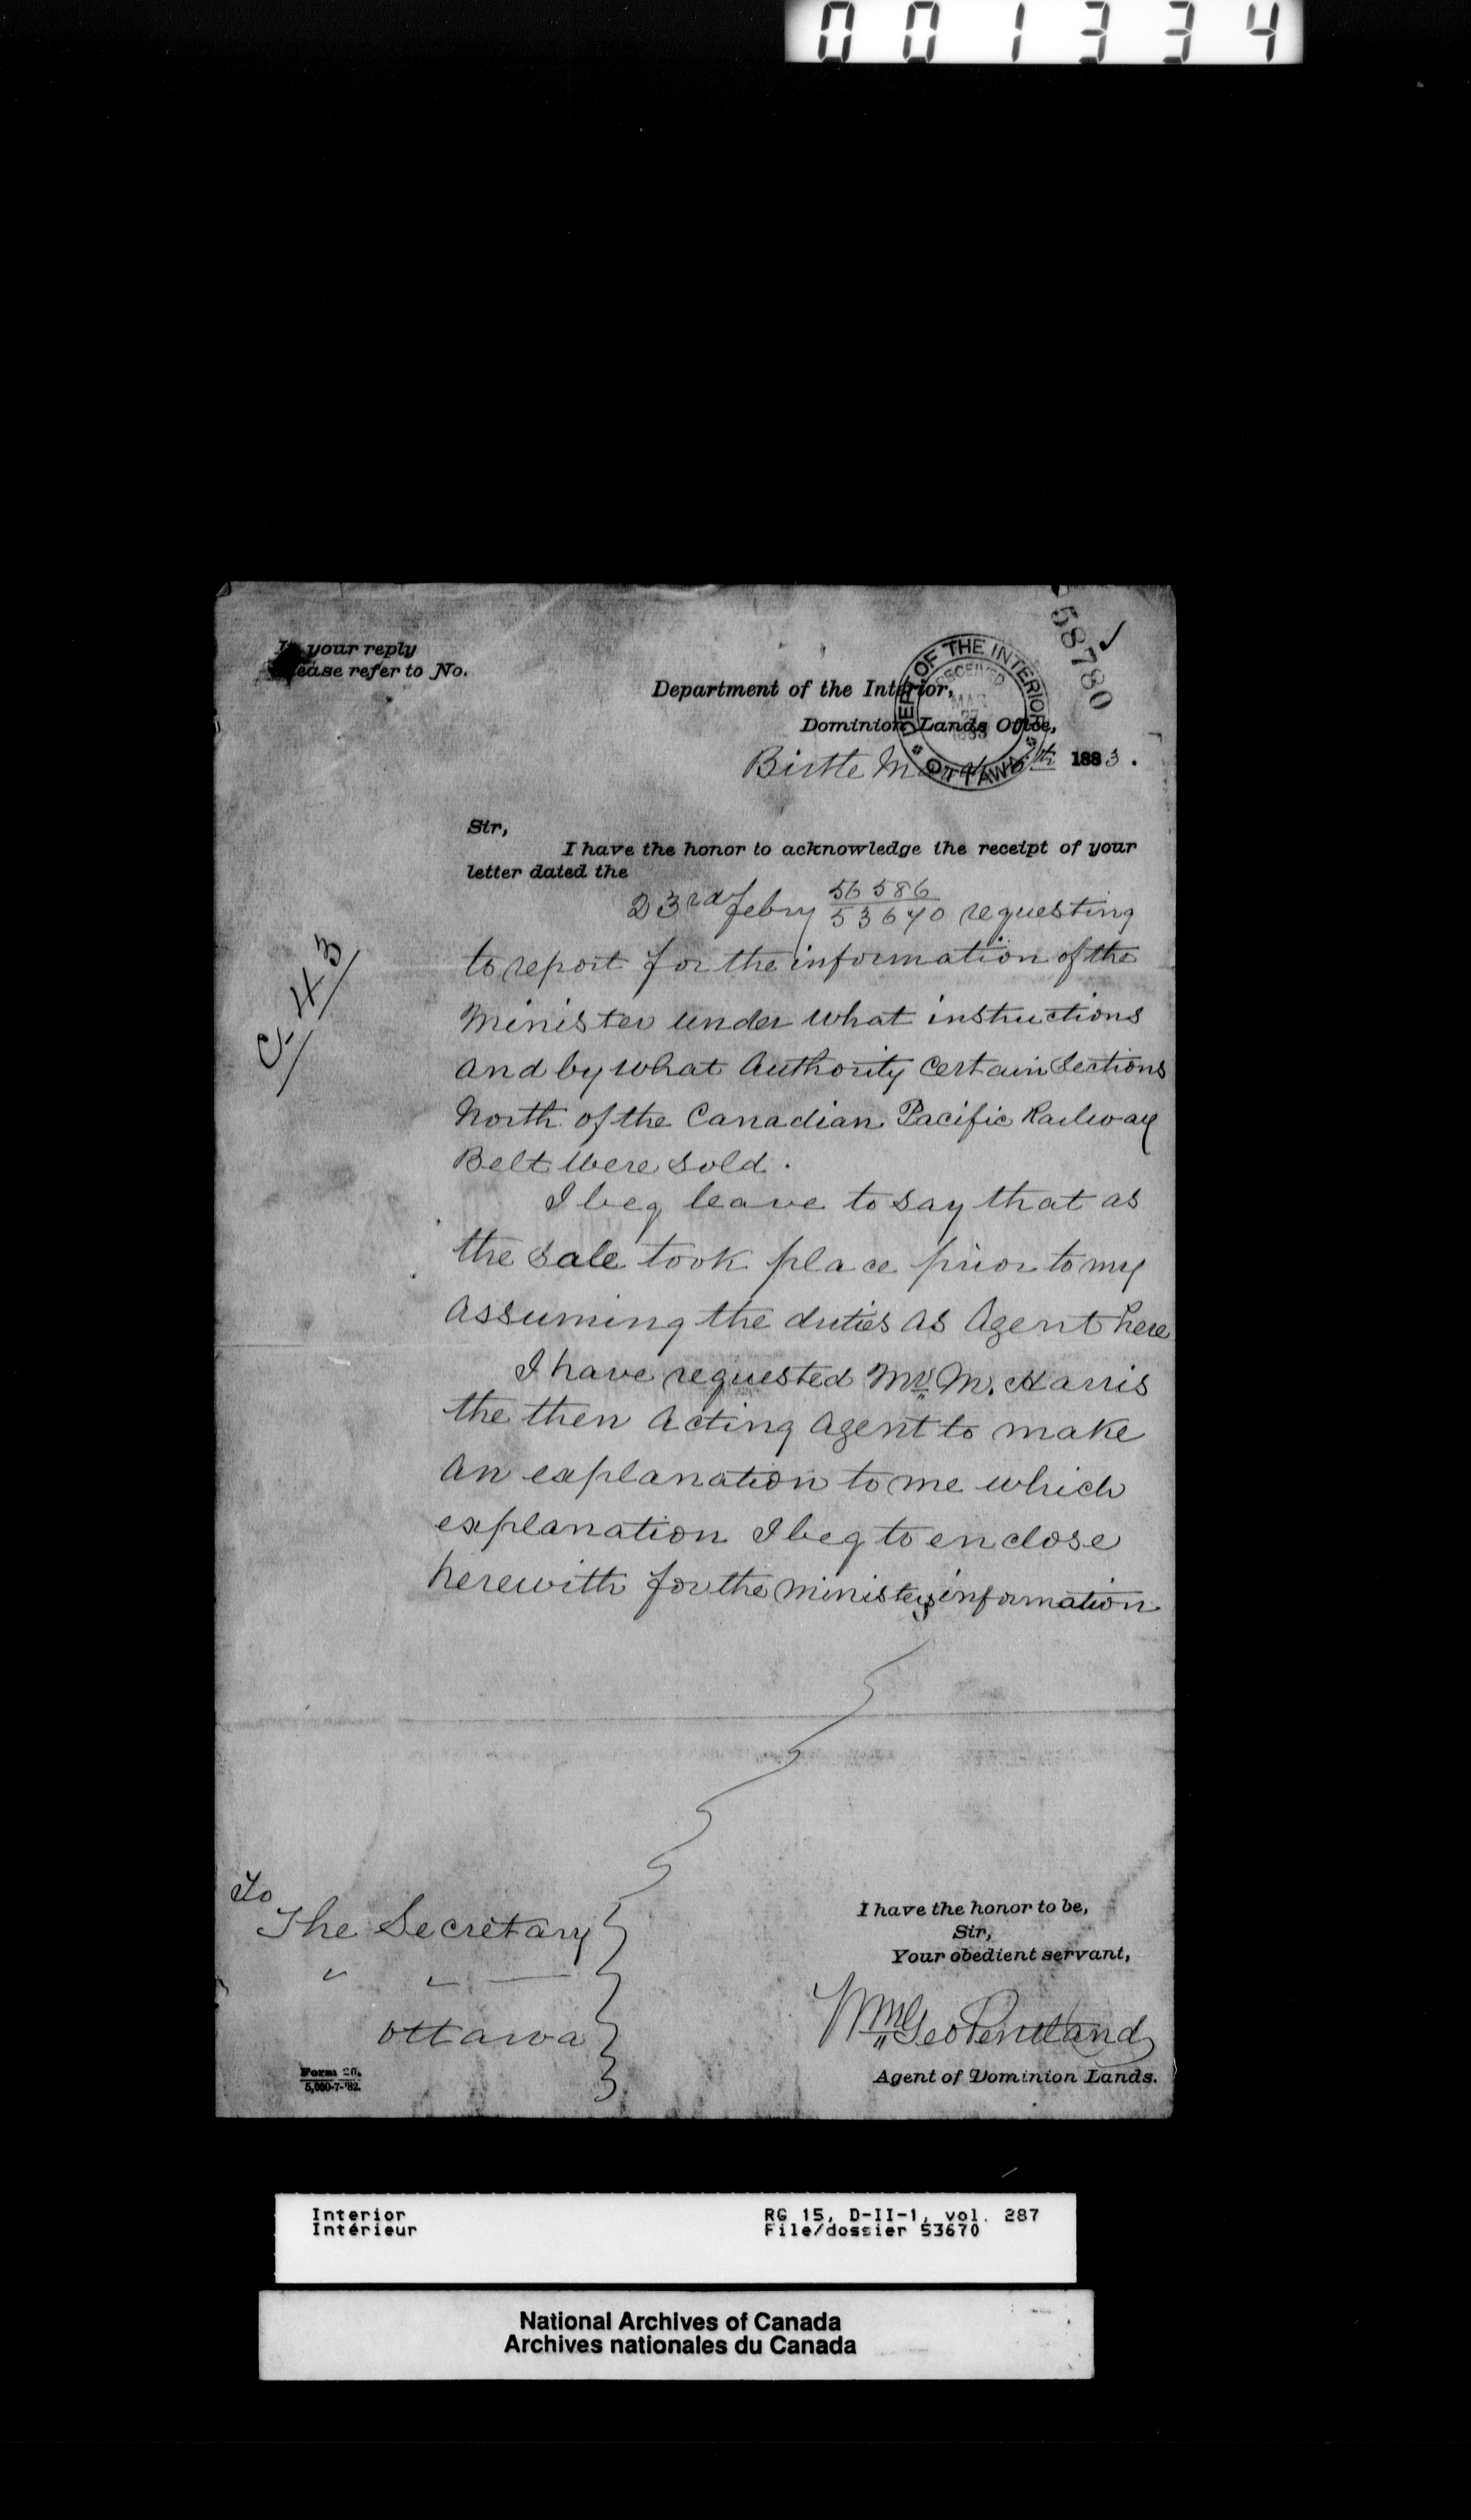 001334
58780
In your reply
please refer to No.
DEPT OF THE INTERIOR
RECEIVED
MAR
27
1883
OTTAWA
Department of the Interior,
Dominion Lands Office,
Birtle March th 1883.
Sir,
I have the honor to acknowledge the receipt of your
letter dated the
23rd Febry 56586/53670 requesting
to report for the information of the
Minister under what instructions
and by what Authority certain Sections
North of the Canadian Pacific Railway
Belt were sold.
I beg leave to say that as
the sale took place prior to my
assuming the duties as Agent here
I have requested Mr M. Harris
the then Acting Agent to make
an explanation to me which
explanation I beg to enclose
herewith for the ministers information
To
The Secretary
" " —
Ottawa
I have the honor to be,
Sir,
Your obedient servant,
Wm Geo Pentland
Agent of Dominion Lands.
Form 20.
5,000-7-'82.
Interior
Intérieur
RG 15, D-II-1, vol. 287
File/dossier 53670
National Archives of Canada
Archives nationales du Canada